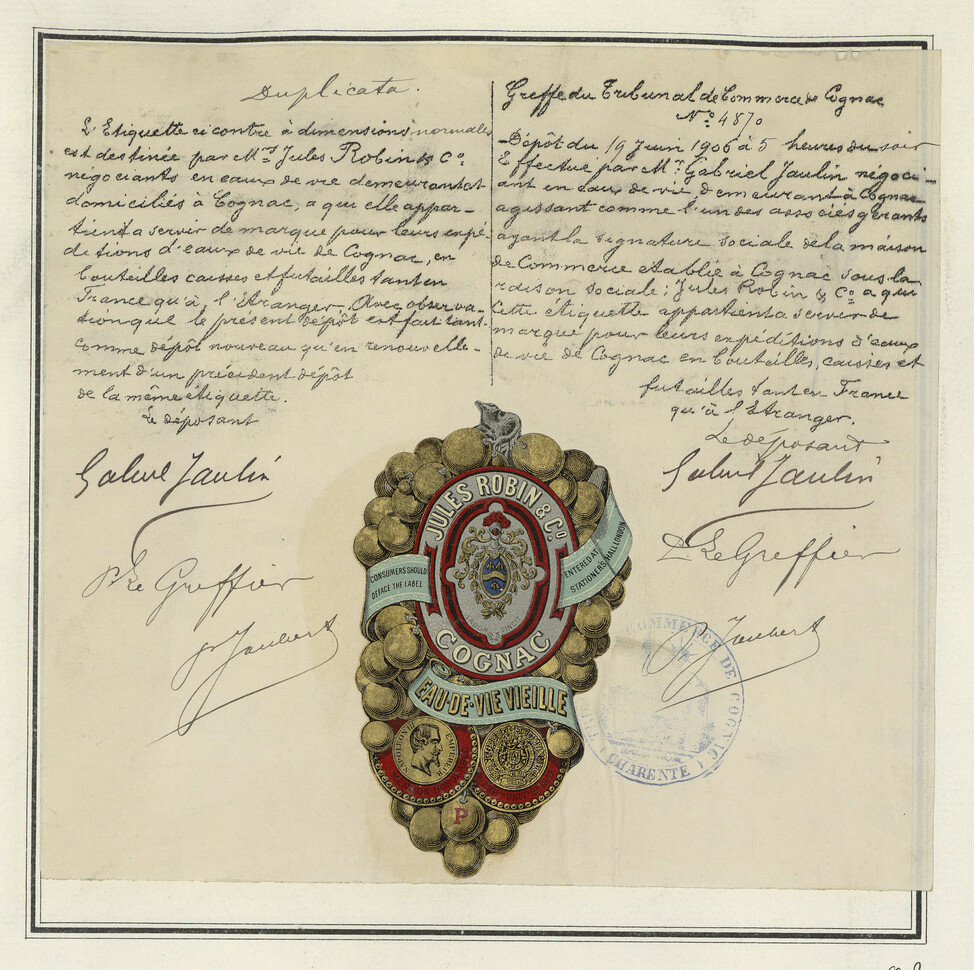 Duplicata.
L'Etiquette ci contre à dimensions normales
est destinée par Mrs Jules Robin & Co
négociants en eaux de vie demeurant et
domiciliés à Cognac, a qui elle appar-
tient a servir de marque pour leurs expé-
ditions d'eaux de vie de Cognac, en
bouteilles caisses et futailles tant en
France qu'à l'Etranger. Avec observa-
tion que le présent dépôt est fait tant
comme dépôt nouveau qu'en renouvelle-
ment d'un précédent dépôt
de la même étiquette.
Le déposant
Gabriel Jaulin
Pr Le Greffier
Greffe du Tribunal de Commerce de Cognac
No 4870
Dépôt du 19 Juin 1906 à 5 heures du soir
Effectué par Mr Gabriel Jaulin négoci-
ant en eaux de vie demeurant à Cognac
agissant comme l'un des associés gérants
ayant la signature sociale de la maison
de Commerce établie à Cognac sous la
raison sociale; Jules Robin & Co a qui
cette étiquette appartient a servir de
marque pour leurs expéditions d'eaux
de vie de Cognac en bouteilles, caisses et
futailles tant en France
qu'à l'Etranger.
Le déposant
Gabriel Jaulin
Pr Le Greffier
JULES ROBIN & Co
COGNAC
CONSUMERS SHOULD
DEFACE THE LABEL
ENTERED AT
STATIONERS HALL LONDON
EAU-DE-VIE VIEILLE
NAPOLEON III EMPEREUR
P
COMMERCE DE COGNAC
CHARENTE